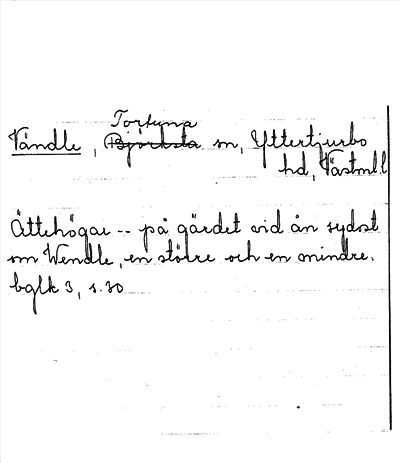 Tortuna
Vändle, Björksta sn, Yttertjurbo
hd, Västml.l
Ättehögar -- på gärdet vid ån sydost
om Wendle, en större och en mindre.
bglk 3, s. 30